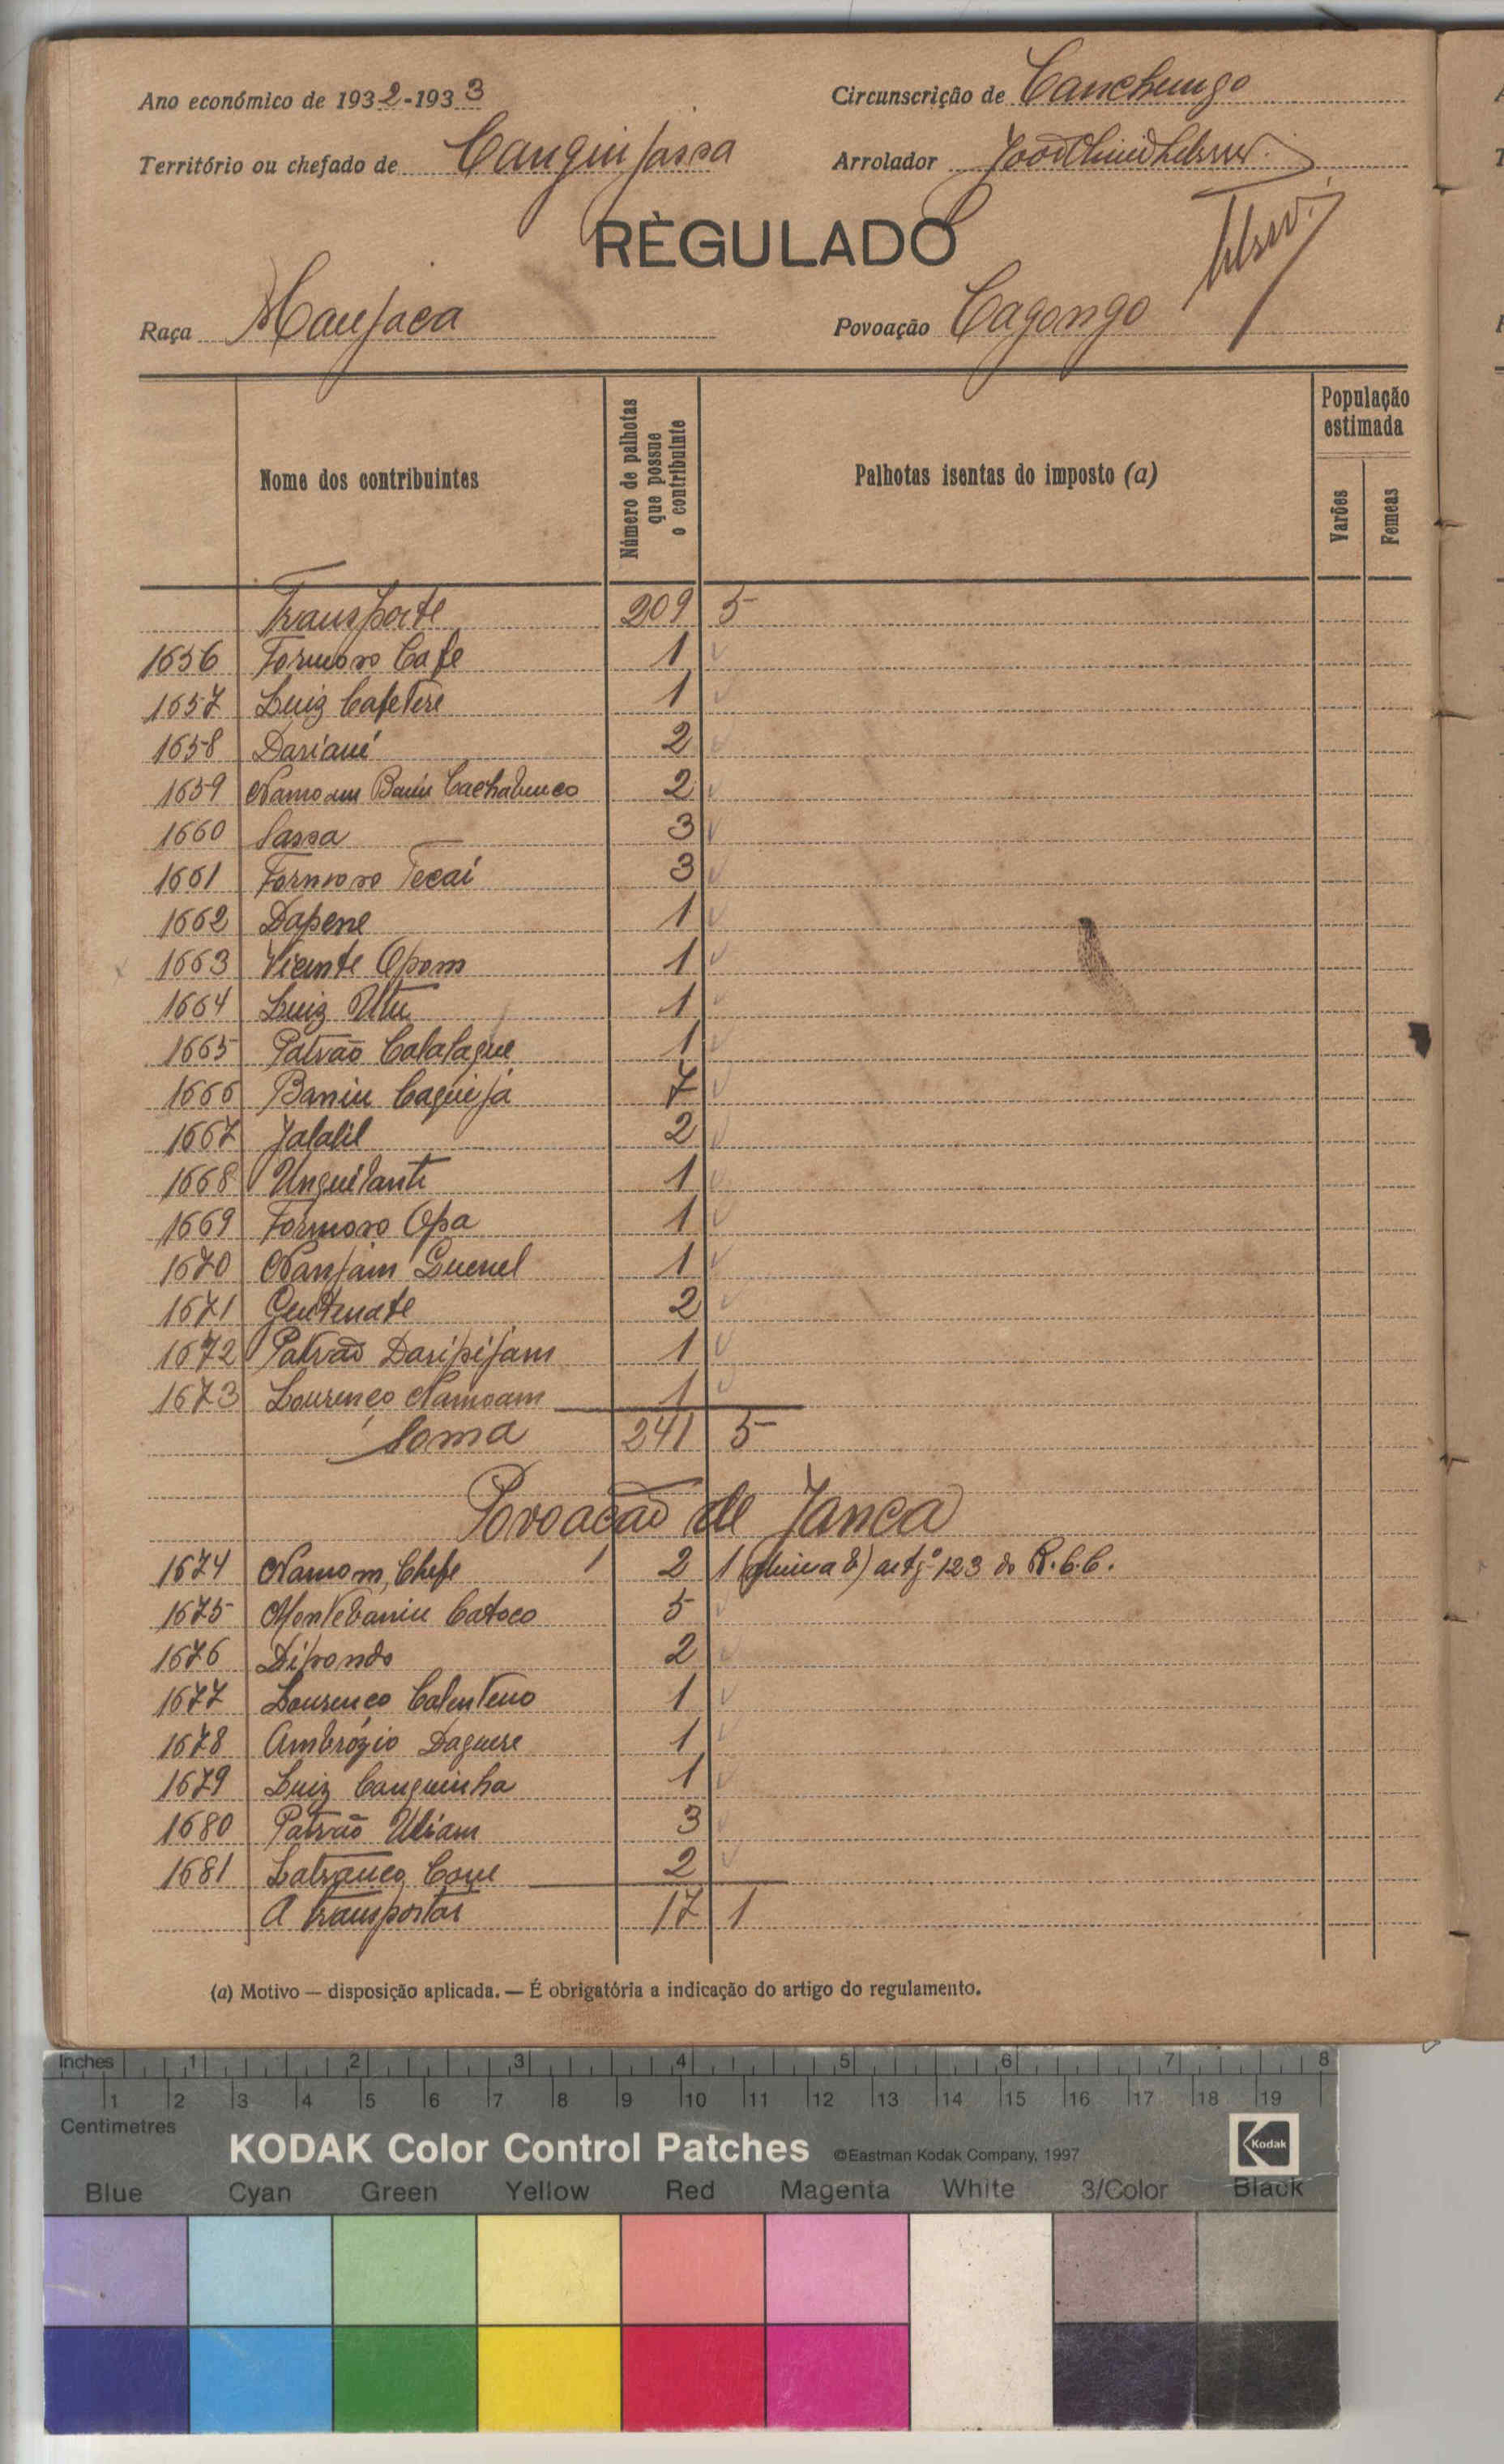 Ano económico de 1932-1933
Circunscrição de Canchungo
Território ou chefado de Canguijassa
Arrolador
RÈGULADO
Raça Manjaca
Povoação Cagongo
Nome dos contribuintes
Número de palhotas que possue o contribuinte
Palhotas isentas do imposto (a)
População estimada
Varões
Femeas
Transporte 209 5
1656 Formoso Cafe 1
1657 Luiz Cafetere 1
1658 Dariané 2
1659 Namoam Baniu 2
1660 Sassa 3
1661 Formoso Tecai 3
1662 Dapene 1
1663 Vicente Opom 1
1664 Luiz Utu 1
1665 Patrão Calafague 1
1666 Baniu Caguijá 7
1667 Jafalil 2
1668 Unguilante 1
1669 Formoso Opa 1
1670 Nanjam Guenel 1
1671 2
1672 Patrão Daripijam 1
1673 Lourenço Namoam 1
Soma 241 5
Povoação de Janca
1674 Namom, Chefe 1 2 1 (alinea b) artgº 123 do R.C.C.
1675 Montebaniu Catoco 5
1676 Dipondo 2
1677 Lourenço Calenteno 1
1678 Ambrózio Daguere 1
1679 Luiz Canguinha 1
1680 Patrão Uliam 3
1681 2
A transportar 17 1
(a) Motivo — disposição aplicada. — É obrigatória a indicação do artigo do regulamento.
Inches 1 2 3 4 5 6 7 8
1 2 3 4 5 6 7 8 9 10 11 12 13 14 15 16 17 18 19
Centimetres
KODAK Color Control Patches ©Eastman Kodak Company, 1997 Kodak
Blue Cyan Green Yellow Red Magenta White 3/Color Black